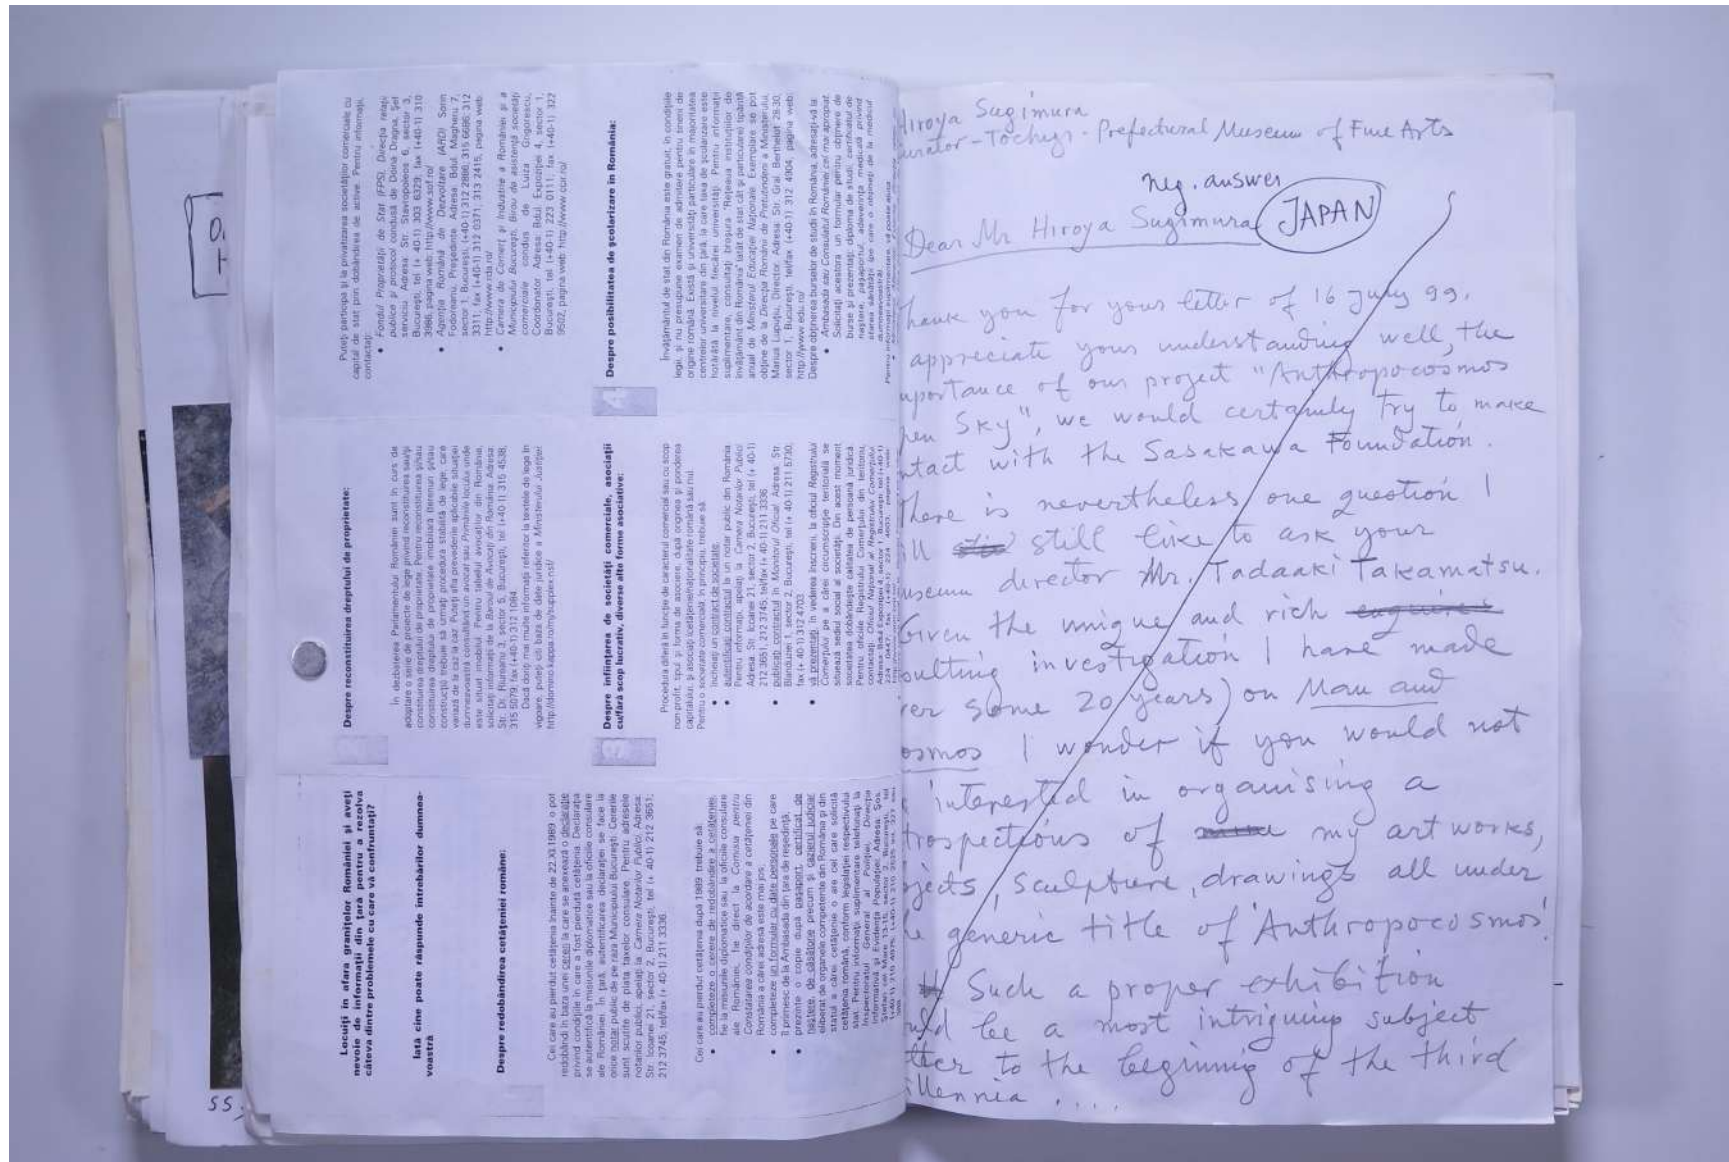 Locuiți în afara granițelor României și aveți
nevoie de informații din țară pentru a rezolva
câteva dintre problemele cu care vă confruntați?
Iată cine poate răspunde întrebărilor dumnea-
voastră
Despre redobândirea cetățeniei române:
Cei care au pierdut cetățenia înainte de 22.XII.1989 o pot
redobândi în baza unei cereri la care se anexează o declarație
privind condițiile în care a fost pierdută cetățenia. Declarația
se autentifică la misiunile diplomatice sau la oficiile consulare
ale României. În țară, autentificarea declarației se face la
orice notar public de pe raza Municipiului București. Cererile
sunt scutite de plata taxelor consulare. Pentru adresele
notarilor publici, apelați la Camera Notarilor Publici, Adresa:
Str. Icoanei 21, sector 2, București, tel (+ 40-1) 212 3651;
212 3745, tel/fax (+ 40-1) 211 3336.
Cei care au pierdut cetățenia după 1989 trebuie să:
• completeze o cerere de redobândire a cetățeniei,
fie la misiunile diplomatice sau la oficiile consulare
ale României, fie direct la Comisia pentru
Constatarea condițiilor de acordare a cetățeniei din
România a cărei adresă este mai jos;
• completeze un formular cu date personale pe care
îl primesc de la Ambasada din țara de reședință;
• prezinte o copie după pașaport, certificat de
naștere, de căsătorie precum și cazierul judiciar
eliberat de organele competente din România și din
statul a cărei cetățenie o are cel care solicită
cetățenia română, conform legislației respectivului
stat. Pentru informații suplimentare telefonați la
Inspectoratul General al Poliției, Direcția
Informatică și Evidența Populației, Adresa: Șos.
Despre reconstituirea dreptului de proprietate:
În dezbaterea Parlamentului României sunt în curs de
adoptare o serie de proiecte de lege privind reconstituirea sau/și
constituirea dreptului de proprietate. Pentru reconstituirea și/sau
constituirea dreptului de proprietate imobiliară (terenuri și/sau
construcții) trebuie să urmați procedura stabilită de lege, care
variază de la caz la caz. Puteți afla prevederile aplicabile situației
dumneavoastră consultând un avocat sau Primăriile locului unde
este situat imobilul. Pentru tabelul avocaților din România,
solicitați informații de la Baroul de Avocați din România, Adresa:
Str. Dr. Râureanu 3, sector 5, București, tel: (+40-1) 315 4538,
315 5079; fax (+40-1) 312 1084.
Dacă doriți mai multe informații referitor la textele de lege în
vigoare, puteți citi baza de date juridice a Ministerului Justiției
http://domino.kappa.ro/mj/supplex.nsf/
3
Despre înființarea de societăți comerciale, asociații
cu/fără scop lucrativ, diverse alte forme asociative:
Procedura diferă în funcție de caracterul comercial sau cu scop
non-profit, tipul și forma de asociere, după originea și ponderea
capitalului, și asociați (cetățenie/naționalitate română sau nu).
Pentru o societate comercială, în principiu, trebuie să:
• încheiați un contract de societate;
• autentificați contractul la un notar public din România.
Pentru informații, apelați la Camera Notarilor Publici
Adresa: Str. Icoanei 21, sector 2, București, tel (+ 40-1)
212 3651, 212 3745, tel/fax (+ 40-1) 211 3336
• publicați contractul în Monitorul Oficial, Adresa: Str.
Blanduziei 1, sector 2, București, tel (+ 40-1) 211 5730;
fax (+ 40-1) 312 4703
• vă prezentați, în vederea înscrierii, la oficiul Registrului
Comerțului pe a cărei circumscripție teritorială se
situează sediul social al societății. Din acest moment
societatea dobândește calitatea de persoană juridică.
Pentru oficiile Registrului Comerțului din teritoriu,
contactați Oficiul Național al Registrului Comerțului
Puteți participa și la privatizarea societăților comerciale cu
capital de stat prin dobândirea de active. Pentru informații,
contactați:
• Fondul Proprietății de Stat (FPS), Direcția relații
publice și protocol condusă de Doina Dragna, Șef
serviciu. Adresa: Str. Stavropoleos 6, sector 3,
București, tel (+ 40-1) 303 6329; fax (+40-1) 310
3986, pagina web: http://www.sof.ro/
• Agenția Română de Dezvoltare (ARD) Sorin
Fodoreanu, Președinte. Adresa: Bdul. Magheru 7,
sector 1, București; (+40-1) 312 2886; 315 6686; 312
3311; fax (+40-1) 312 0371; 313 2415, pagina web:
http://www.rda.ro/
• Camera de Comerț și Industrie a României și a
Municipiului București, Birou de asistență societăți
comerciale condus de Luiza Grigorescu,
Coordonator. Adresa: Bdul. Expoziției 4, sector 1,
București, tel (+40-1) 223 0111; fax (+40-1) 322
9502, pagina web: http://www.ccir.ro/
4
Despre posibilitatea de școlarizare în România:
Învățământul de stat din România este gratuit, în condițiile
legii, și nu presupune examen de admitere pentru tinerii de
origine română. Există și universități particulare în majoritatea
centrelor universitare din țară, la care taxa de școlarizare este
hotărâtă la nivelul fiecărei universități. Pentru informații
suplimentare, consultați broșura "Rețeaua instituțiilor de
învățământ din România" (atât de stat cât și particulare) tipărită
anual de Ministerul Educației Naționale. Exemplare se pot
obține de la Direcția Românii de Pretutindeni a Ministerului,
Marius Lupuțiu, Director, Adresa: Str. Gral. Berthelot 28-30,
sector 1, București, tel/fax (+40-1) 312 4904, pagina web:
http://www.edu.ro/
Despre obținerea burselor de studii în România, adresați-vă la:
• Ambasada sau Consulatul României cel mai apropiat.
Solicitați acestora un formular pentru obținere de
burse și prezentați: diploma de studii, certificatul de
naștere, pașaportul, adeverința medicală privind
starea sănătății (pe care o obțineți de la medicul
dumneavoastră).
55
Hiroya Sugimura
curator - Tochigi - Prefectural Museum of Fine Arts
neg. answer
Dear Mr Hiroya Sugimura JAPAN
hank you for your letter of 16 July 99.
appreciate your understanding well, the
mportance of our project "Anthropocosmos
pen Sky", we would certainly try to make
ntact with the Sasakawa Foundation.
here is nevertheless one question I
ill still like to ask your
useum director Mr. Tadaaki Takamatsu.
Given the unique and rich enquires
sulting investigation I have made
ver some 20 years) on Man and
osmos I wonder if you would not
interested in organising a
trospections of my art works,
jects, sculpture, drawings all under
he generic title of 'Anthropocosmos'.
Such a proper exhibition
uld be a most intriguing subject
tter to the beginning of the third
illennia ....